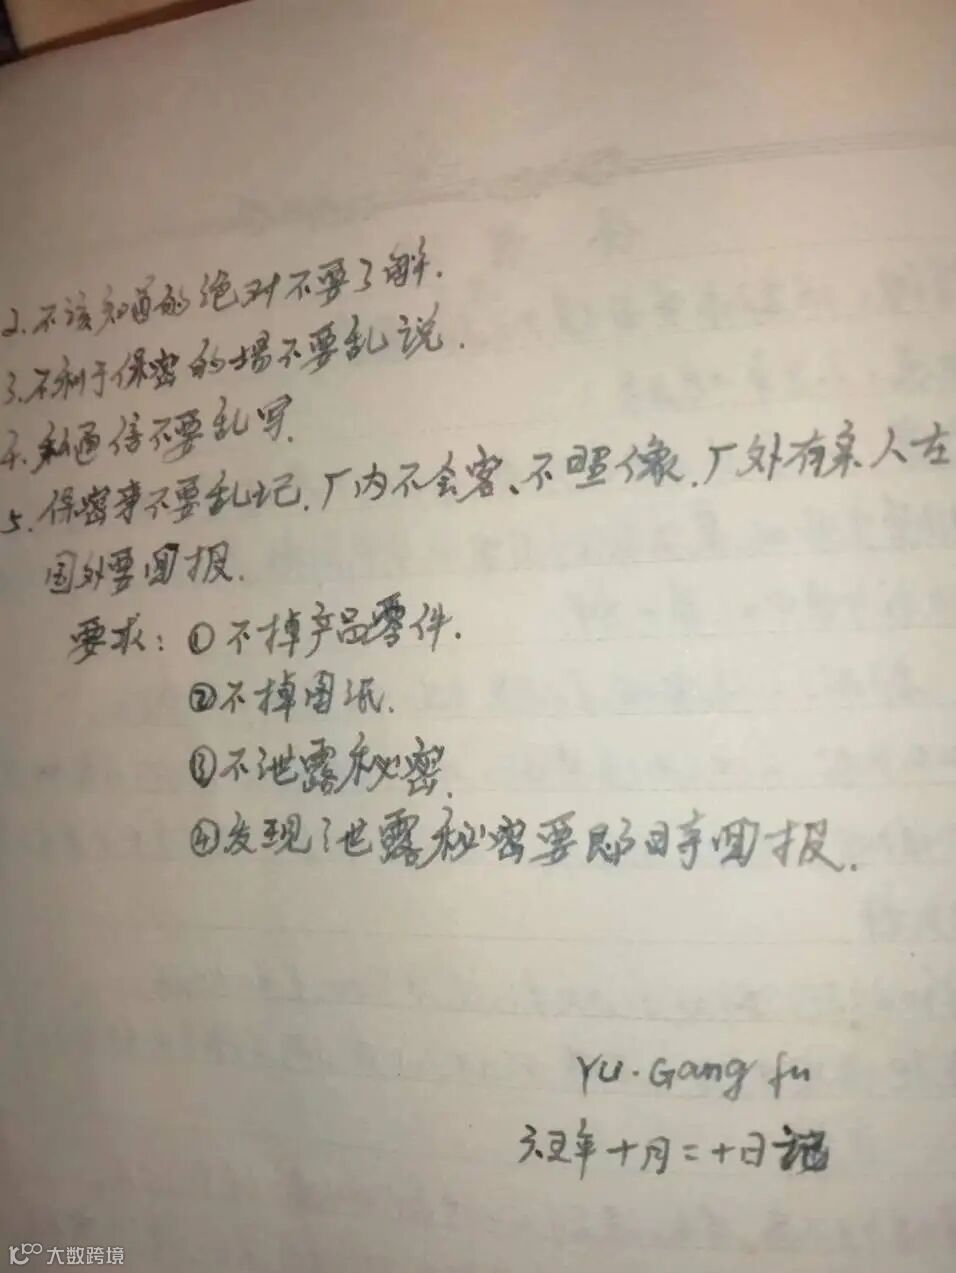 2.不该知道的绝对不要了解.
3.不利于保密的場不要乱说.
4.私通信不要乱写.
5.保密事不要乱记.厂内不会客、不照像.厂外有亲人在
国外要回报.
要求:①不掉产品零件.
②不掉图纸.
③不泄露秘密.
④发现泄露秘密要即日事回报.
YU.Gang fu
六五年十月二十日记
大数跨境